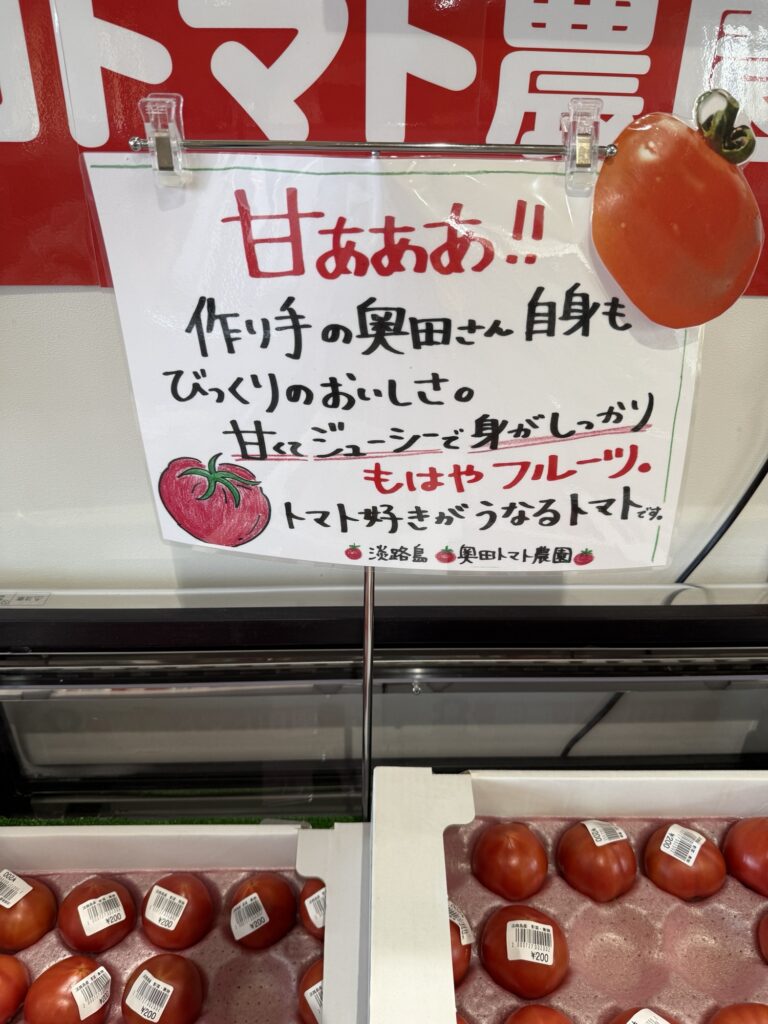 トマト農
甘ぁぁぁ!!
作り手の奥田さん自身も
びっくりのおいしさ。
甘くてジューシーで身がしっかり
もはやフルーツ。
トマト好きがうなるトマトです。
淡路島 奥田トマト農園
¥200
¥200
¥200
¥200
¥200
¥200
¥200
¥200